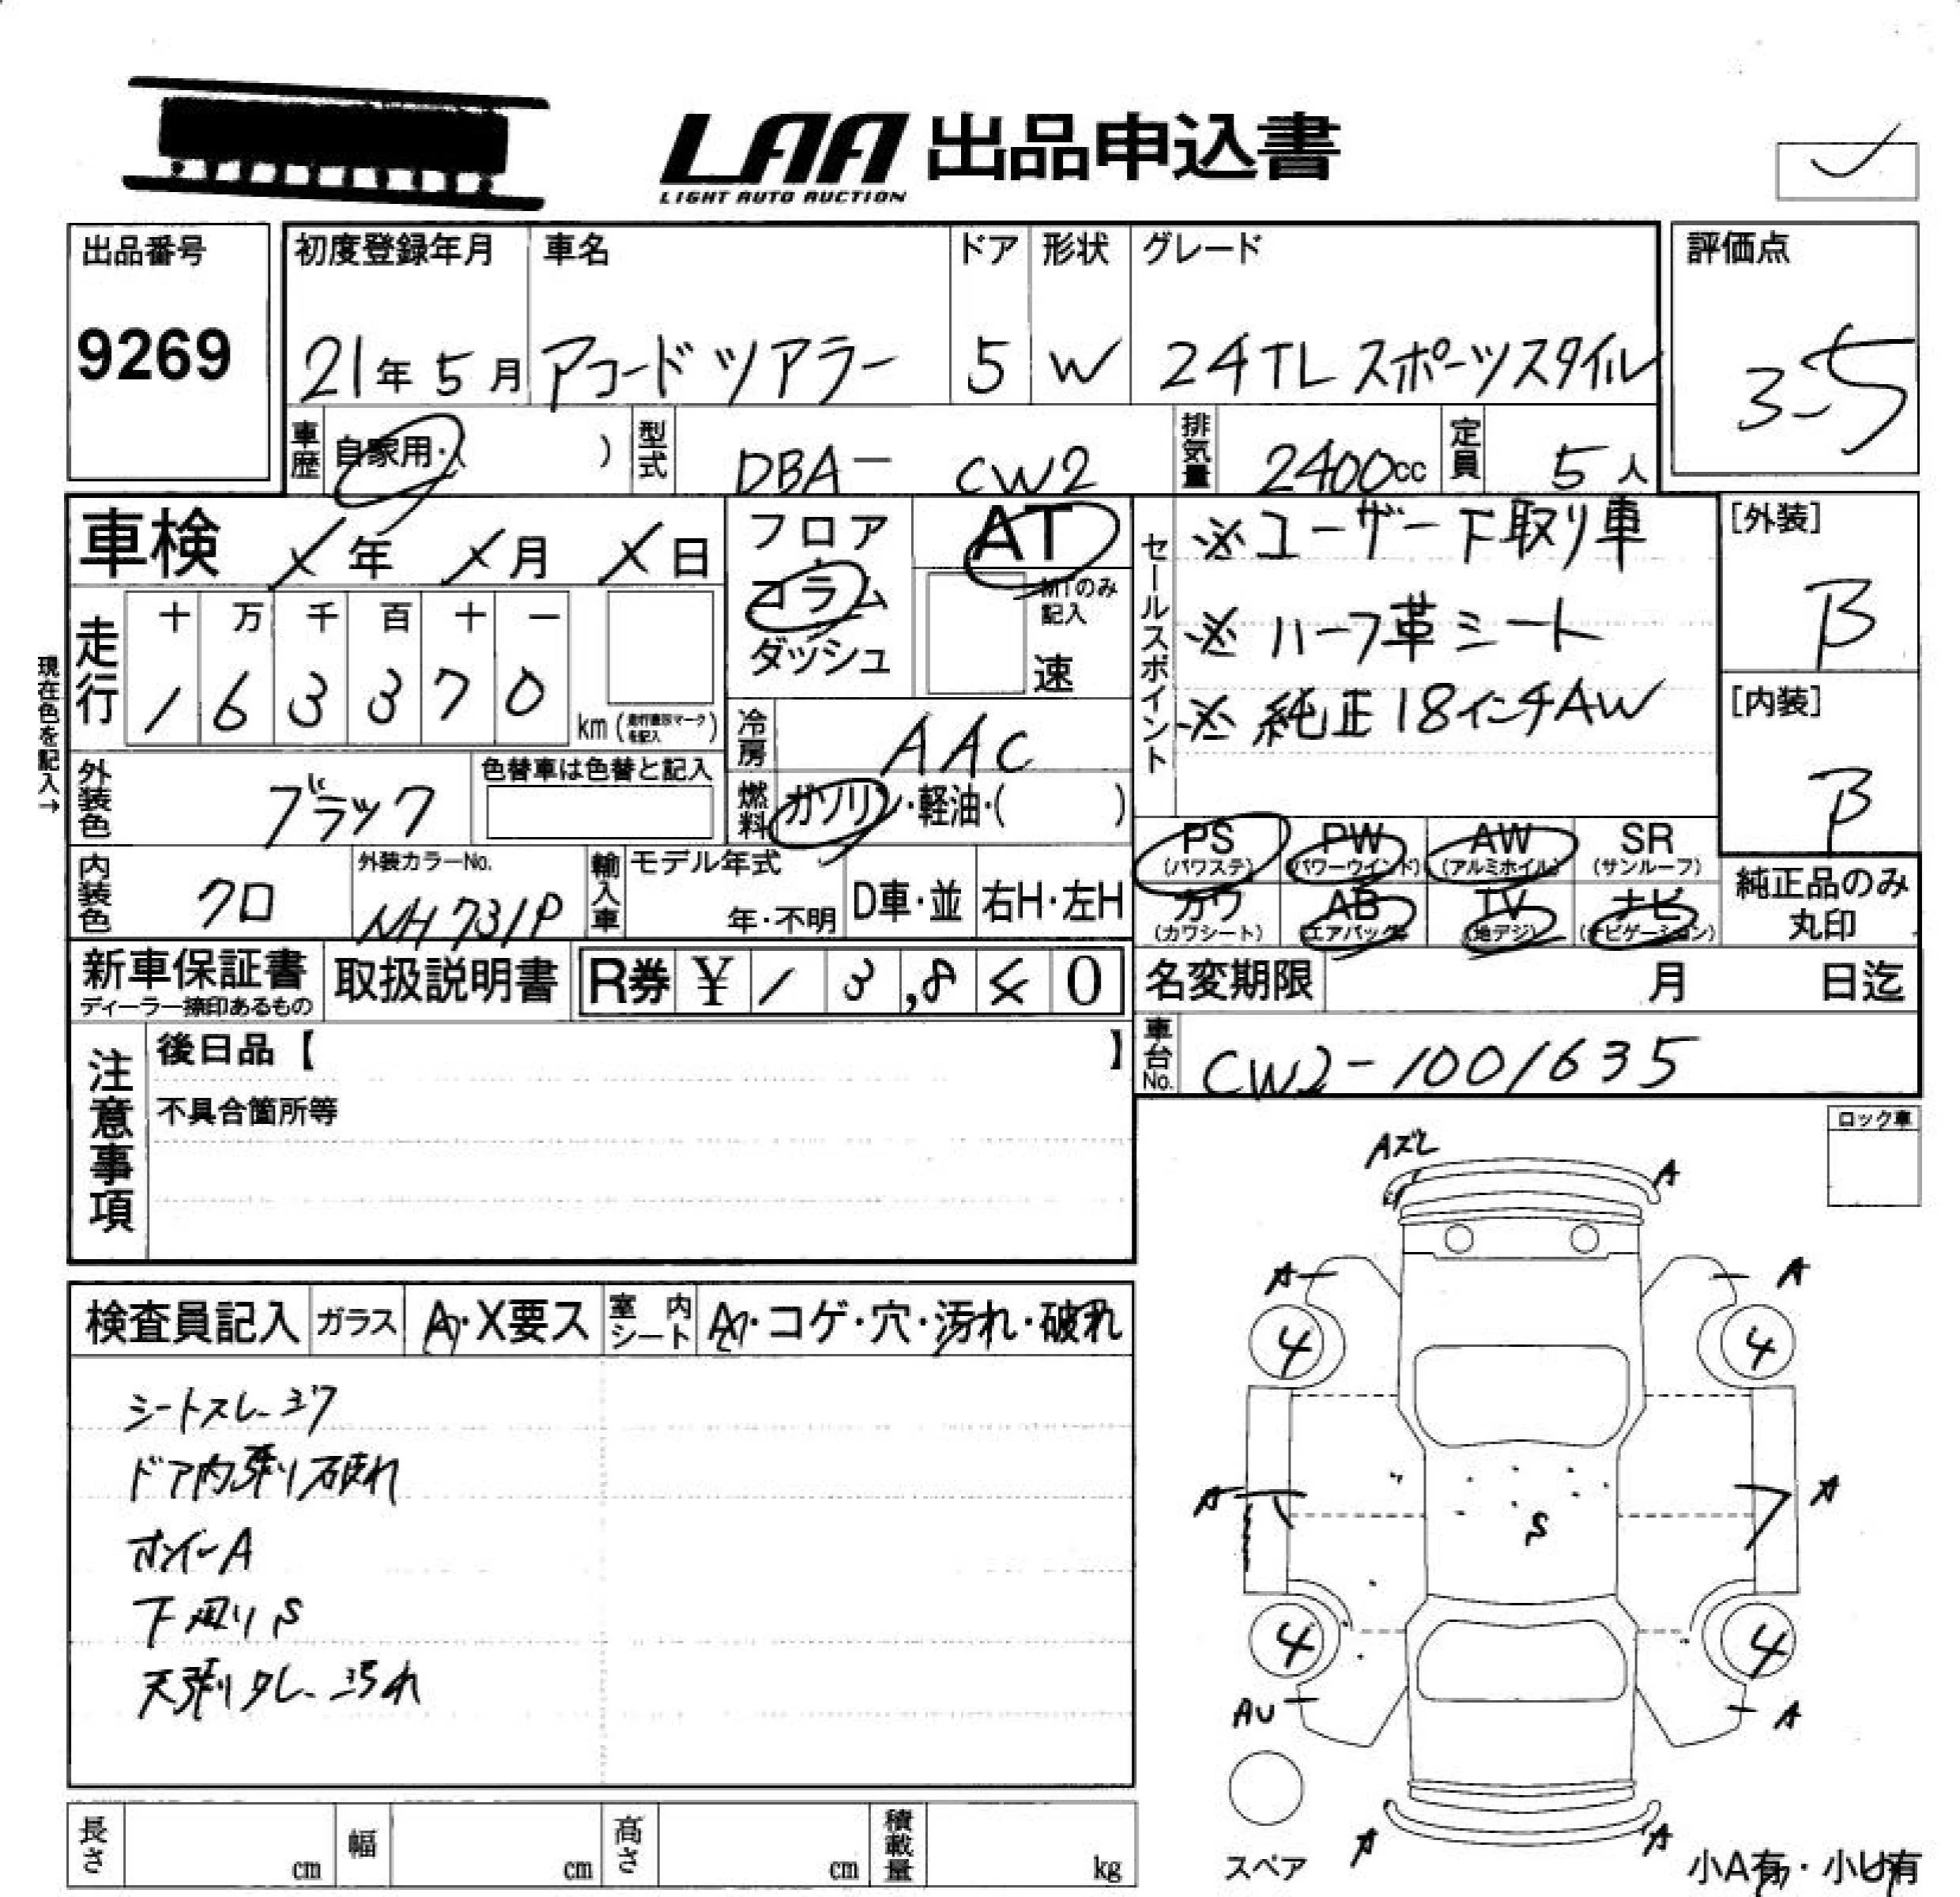 LAA 出品申込書
LIGHT AUTO AUCTION
出品番号
9269
初度登録年月
21年 5月
車名
アコードツアラー
ドア
5
形状
W
グレード
24TL スポーツスタイル
評価点
3.5
車歴
自家用・( )
型式
DBA- CW2
排気量
2400cc
定員
5人
車検 X年 X月 X日
現在色を記入→
走行
十 万 千 百 十 一
1 6 3 3 7 0
km (走行表示マークを記入)
フロア
コラム
ダッシュ
AT
MTのみ記入
速
セールスポイント
※ユーザー下取り車
※ハーフ革シート
※純正18インチAW
[外装]
B
[内装]
B
冷房
AAC
燃料
ガソリン・軽油・( )
外装色
ブラック
色替車は色替と記入
内装色
クロ
外装カラーNo.
NH731P
輸入車
モデル年式
年・不明
D車・並
右H・左H
PS (パワステ)
PW (パワーウインド)
AW (アルミホイル)
SR (サンルーフ)
カワ (カワシート)
AB (エアバック)
TV (地デジ)
ナビ (ナビゲーション)
純正品のみ丸印
新車保証書
ディーラー捺印あるもの
取扱説明書
R券 ¥ 1 3,8 0
名変期限 月 日迄
車台No.
CW2-1001635
注意事項
後日品【 】
不具合箇所等
ロック車
検査員記入
ガラス
A・X要ス
室内シート
A・コゲ・穴・汚れ・破れ
シートスレ
ドア内張り破れ
ホイールA
下廻りS
天張りタレ 汚れ
Aズレ
A
A
A
4
4
A
A
S
4
4
AU
A
A
A
スペア
小A有・小U有
長さ cm
幅 cm
高さ cm
積載量 kg